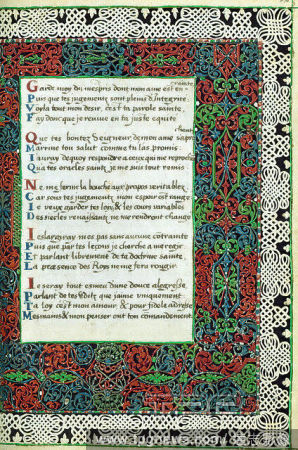 crainte
Garde moy du mespris dont mon ame est en
Puis que tes jugemens sont pleins d'integrite
Voyla tout mon desir, c'est ta parole sainte
Fay donc que je revive en ta juste equite
chent
Que tes bontez Seigneur de mon ame sapro
Marime ton salut comme tu las promis
Iauray dequoy respondre a ceux qui me reproche
Qua tes oracles saints je me suis tout remis
Ne me ferme la bouche aux propos veritables
Car sous tes jugements mon espoir est range
Ie veux garder tes loix & les cours
Des siecles renaissans ne me rendront change
Ieslargiray mes pas sans aucune contrainte
Puis que par tes leçons je cherche a me regir
Et parlant librement de ta doctrine sainte
La presence des Roys ne me fera rougir
Ie seray tout esmeu d'une douce alegresse
Parlant de tes Edits que jaime uniquement
Ta loy c'est mon amour & pour fidele adresse
Mes mains & mon penser ont ton comandement